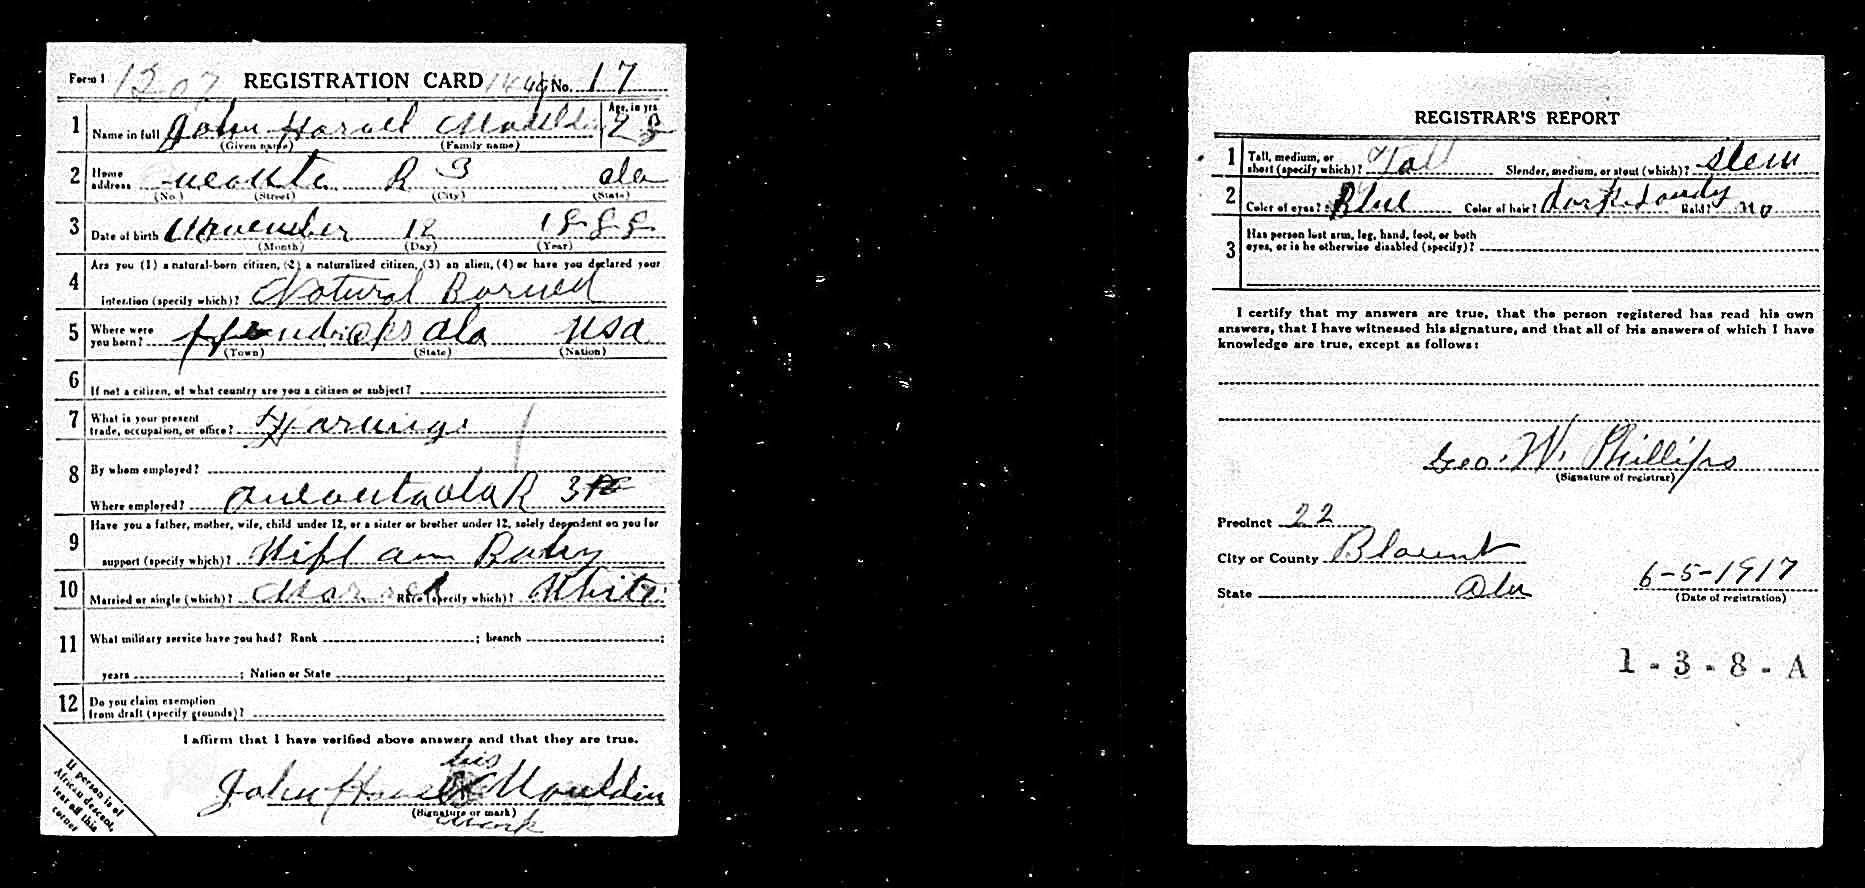 Form 1 1207 REGISTRATION CARD No. 17
1 Name in full John Harvell Mouldin Age, in yrs. 28
(Given name) (Family name)
2 Home address Oneonta R 3 ala
(No.) (Street) (City) (State)
3 Date of birth November 12 1888
(Month) (Day) (Year)
4 Are you (1) a natural-born citizen, (2) a naturalized citizen, (3) an alien, (4) or have you declared your
intention (specify which)? Natural Borned
5 Where were you born? Hendricks ala USA
(Town) (State) (Nation)
6 If not a citizen, of what country are you a citizen or subject?
7 What is your present
trade, occupation, or office? Farming
8 By whom employed?
Where employed? Oneonta ala R 3
9 Have you a father, mother, wife, child under 12, or a sister or brother under 12, solely dependent on you for
support (specify which)? Wife an Baby
10 Married or single (which)? Race (specify which)? White
11 What military service have you had? Rank ; branch ;
years ; Nation or State
12 Do you claim exemption
from draft (specify grounds)?
I affirm that I have verified above answers and that they are true.
his
John Harvell X Mouldin
(Signature or mark)
mark
If person is of
African descent,
tear off this
corner
REGISTRAR'S REPORT
1 Tall, medium, or
short (specify which)? Tall Slender, medium, or stout (which)? Slem
2 Color of eyes? Blue Color of hair? dark Sandy Bald? no
3 Has person lost arm, leg, hand, foot, or both
eyes, or is he otherwise disabled (specify)?
I certify that my answers are true, that the person registered has read his own
answers, that I have witnessed his signature, and that all of his answers of which I have
knowledge are true, except as follows:
Geo. W. Phillips
(Signature of registrar)
Precinct 22
City or County Blount
State Ala
6-5-1917
(Date of registration)
1-3-8-A